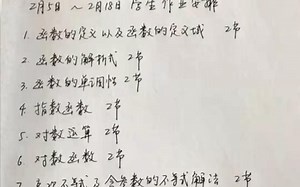 2月5日～2月18日 学生作业安排
1. 函数的定义以及函数的定义域 2节
2. 函数的解析式 2节
3. 函数的单调性 2节
4. 指数函数 2节
5. 对数运算 2节
6. 对数函数 2节
7. 不等式及含参数的不等式解法 2节